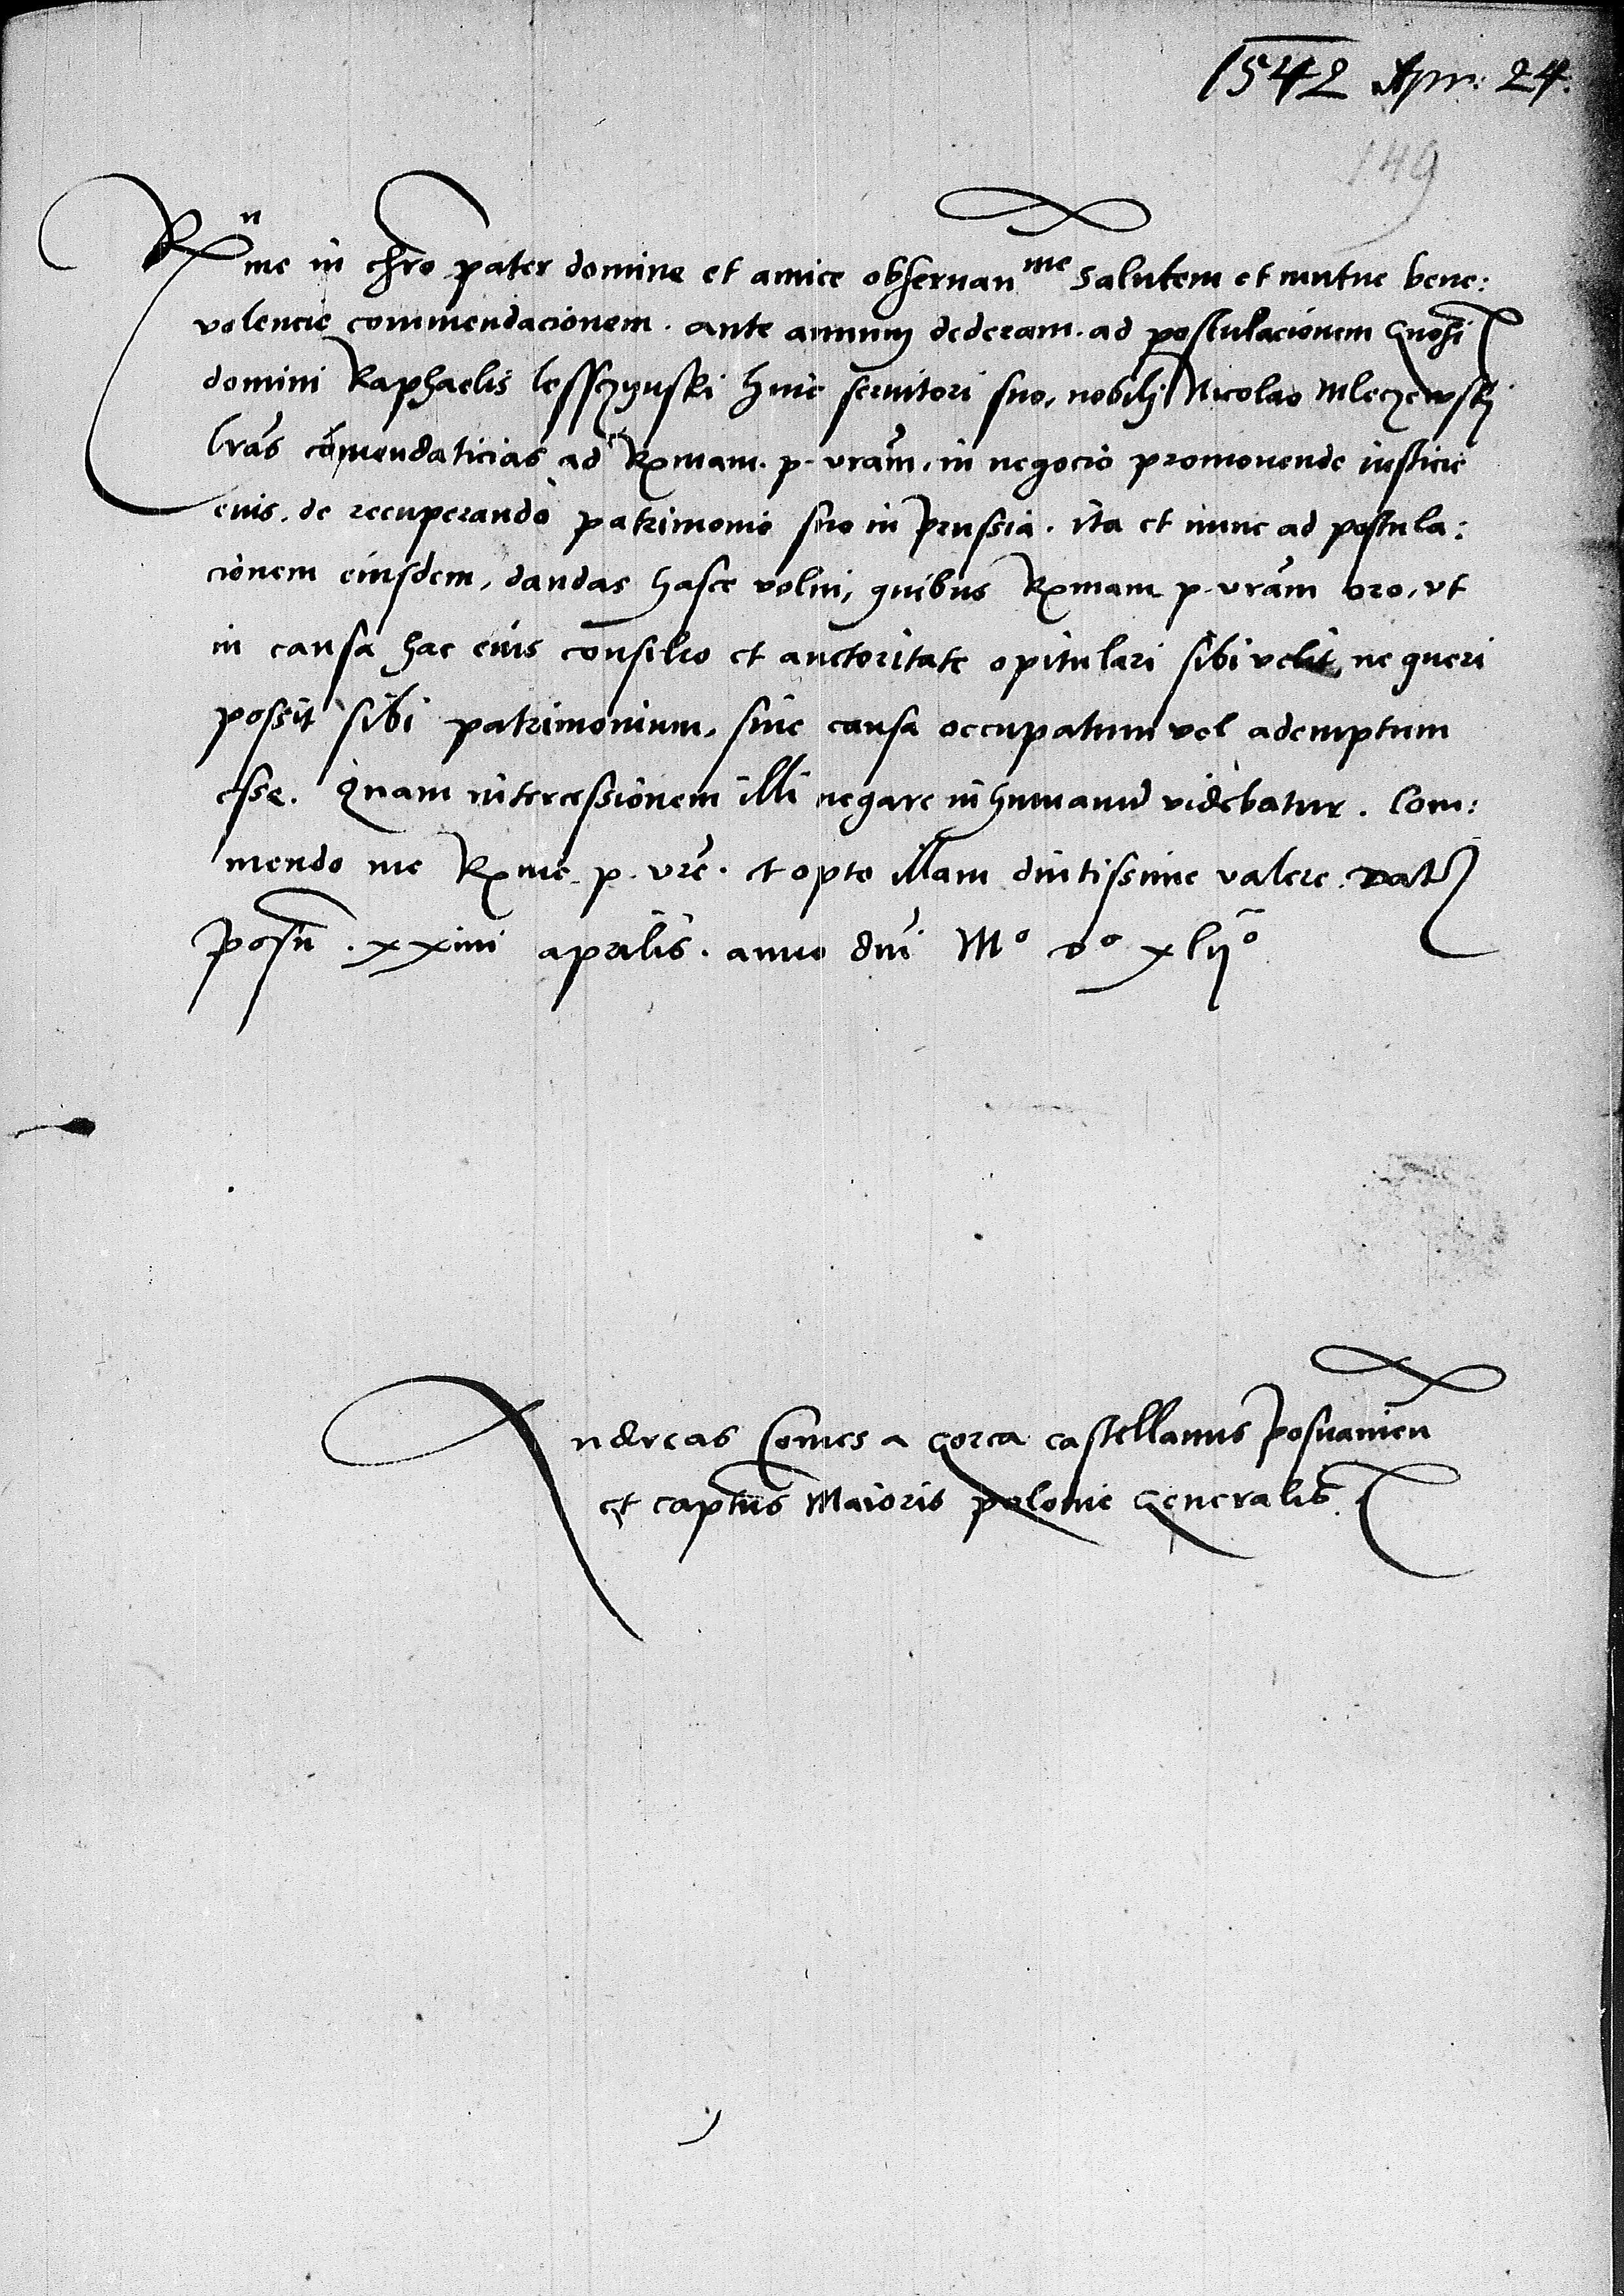 1542 Apr: 24.
149
Rnme in chro pater domine et amice obseruanme Salutem et mutue bene:
volencie commendacionem. ante annum dederam. ad postulacionem Gnosi
domini Raphaelis lessczynski huic seruitori suo, nobilij Nicolao Mleczewskj
lras comendaticias ad Rmam. p. vram. in negocio promouende iusticie
euis. de recuperando patrimonio suo in Prussia. ita et nunc ad postula:
cionem eiusdem, dandas hasce volui, quibus Rmam p. vram oro, vt
in causa hac eius consilio et auctoritate opitulari sibi velit, ne queri
possit sibi patrimonium, sine causa occupatum vel ademptum
esse. Quam intercessionem illi negare inhumanum videbatur. Com:
mendo me Rme. p. vre. et opto illam diutissime valere. Dat
Posn. xxiiii aprilis. anno dni Mo vo xlijo
Andreas Comes a Gorca castellanus Posnanien
et captus Maioris polonie Generalis.